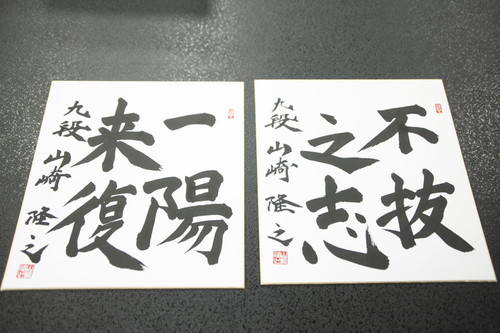 一陽
来復
九段 山崎 隆之
不抜
之志
九段 山崎 隆之